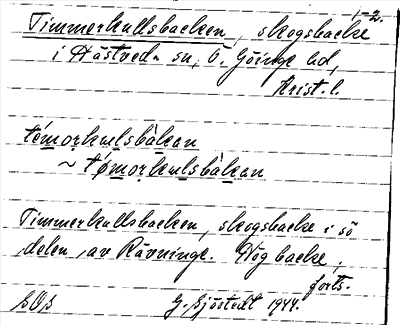 1-2.
Timmerkullsbacken, skogsbacke
i Hästveda sn, Ö. Göinge hd,
Krist. l.
témorkulsbàkan
~ tǿmorkulsbàkan
Timmerkullsbacken, skogsbacke i sö
delen av Rävninge. Hög backe,
forts.
G. Sjöstedt 1944.